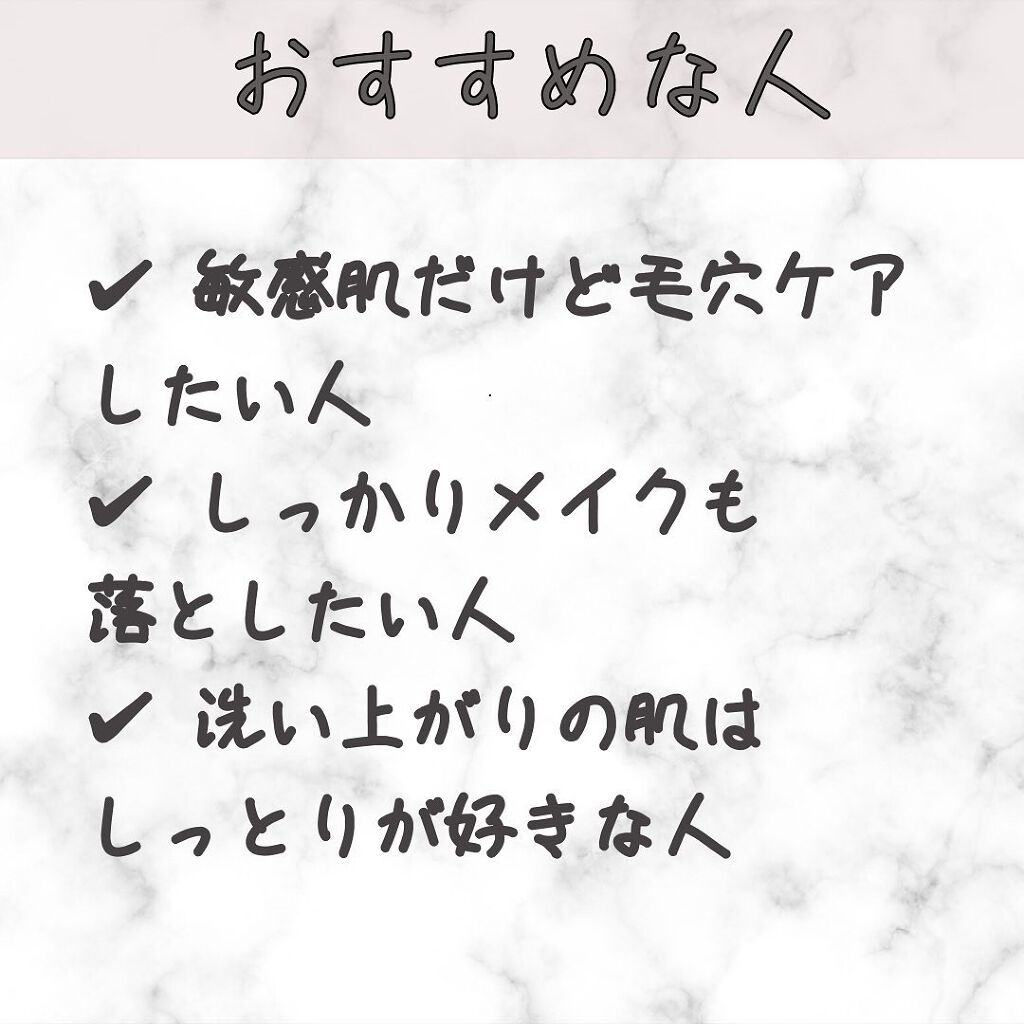 おすすめな人
✔ 敏感肌だけど毛穴ケア
したい人
✔ しっかりメイクも
落としたい人
✔ 洗い上がりの肌は
しっとりが好きな人